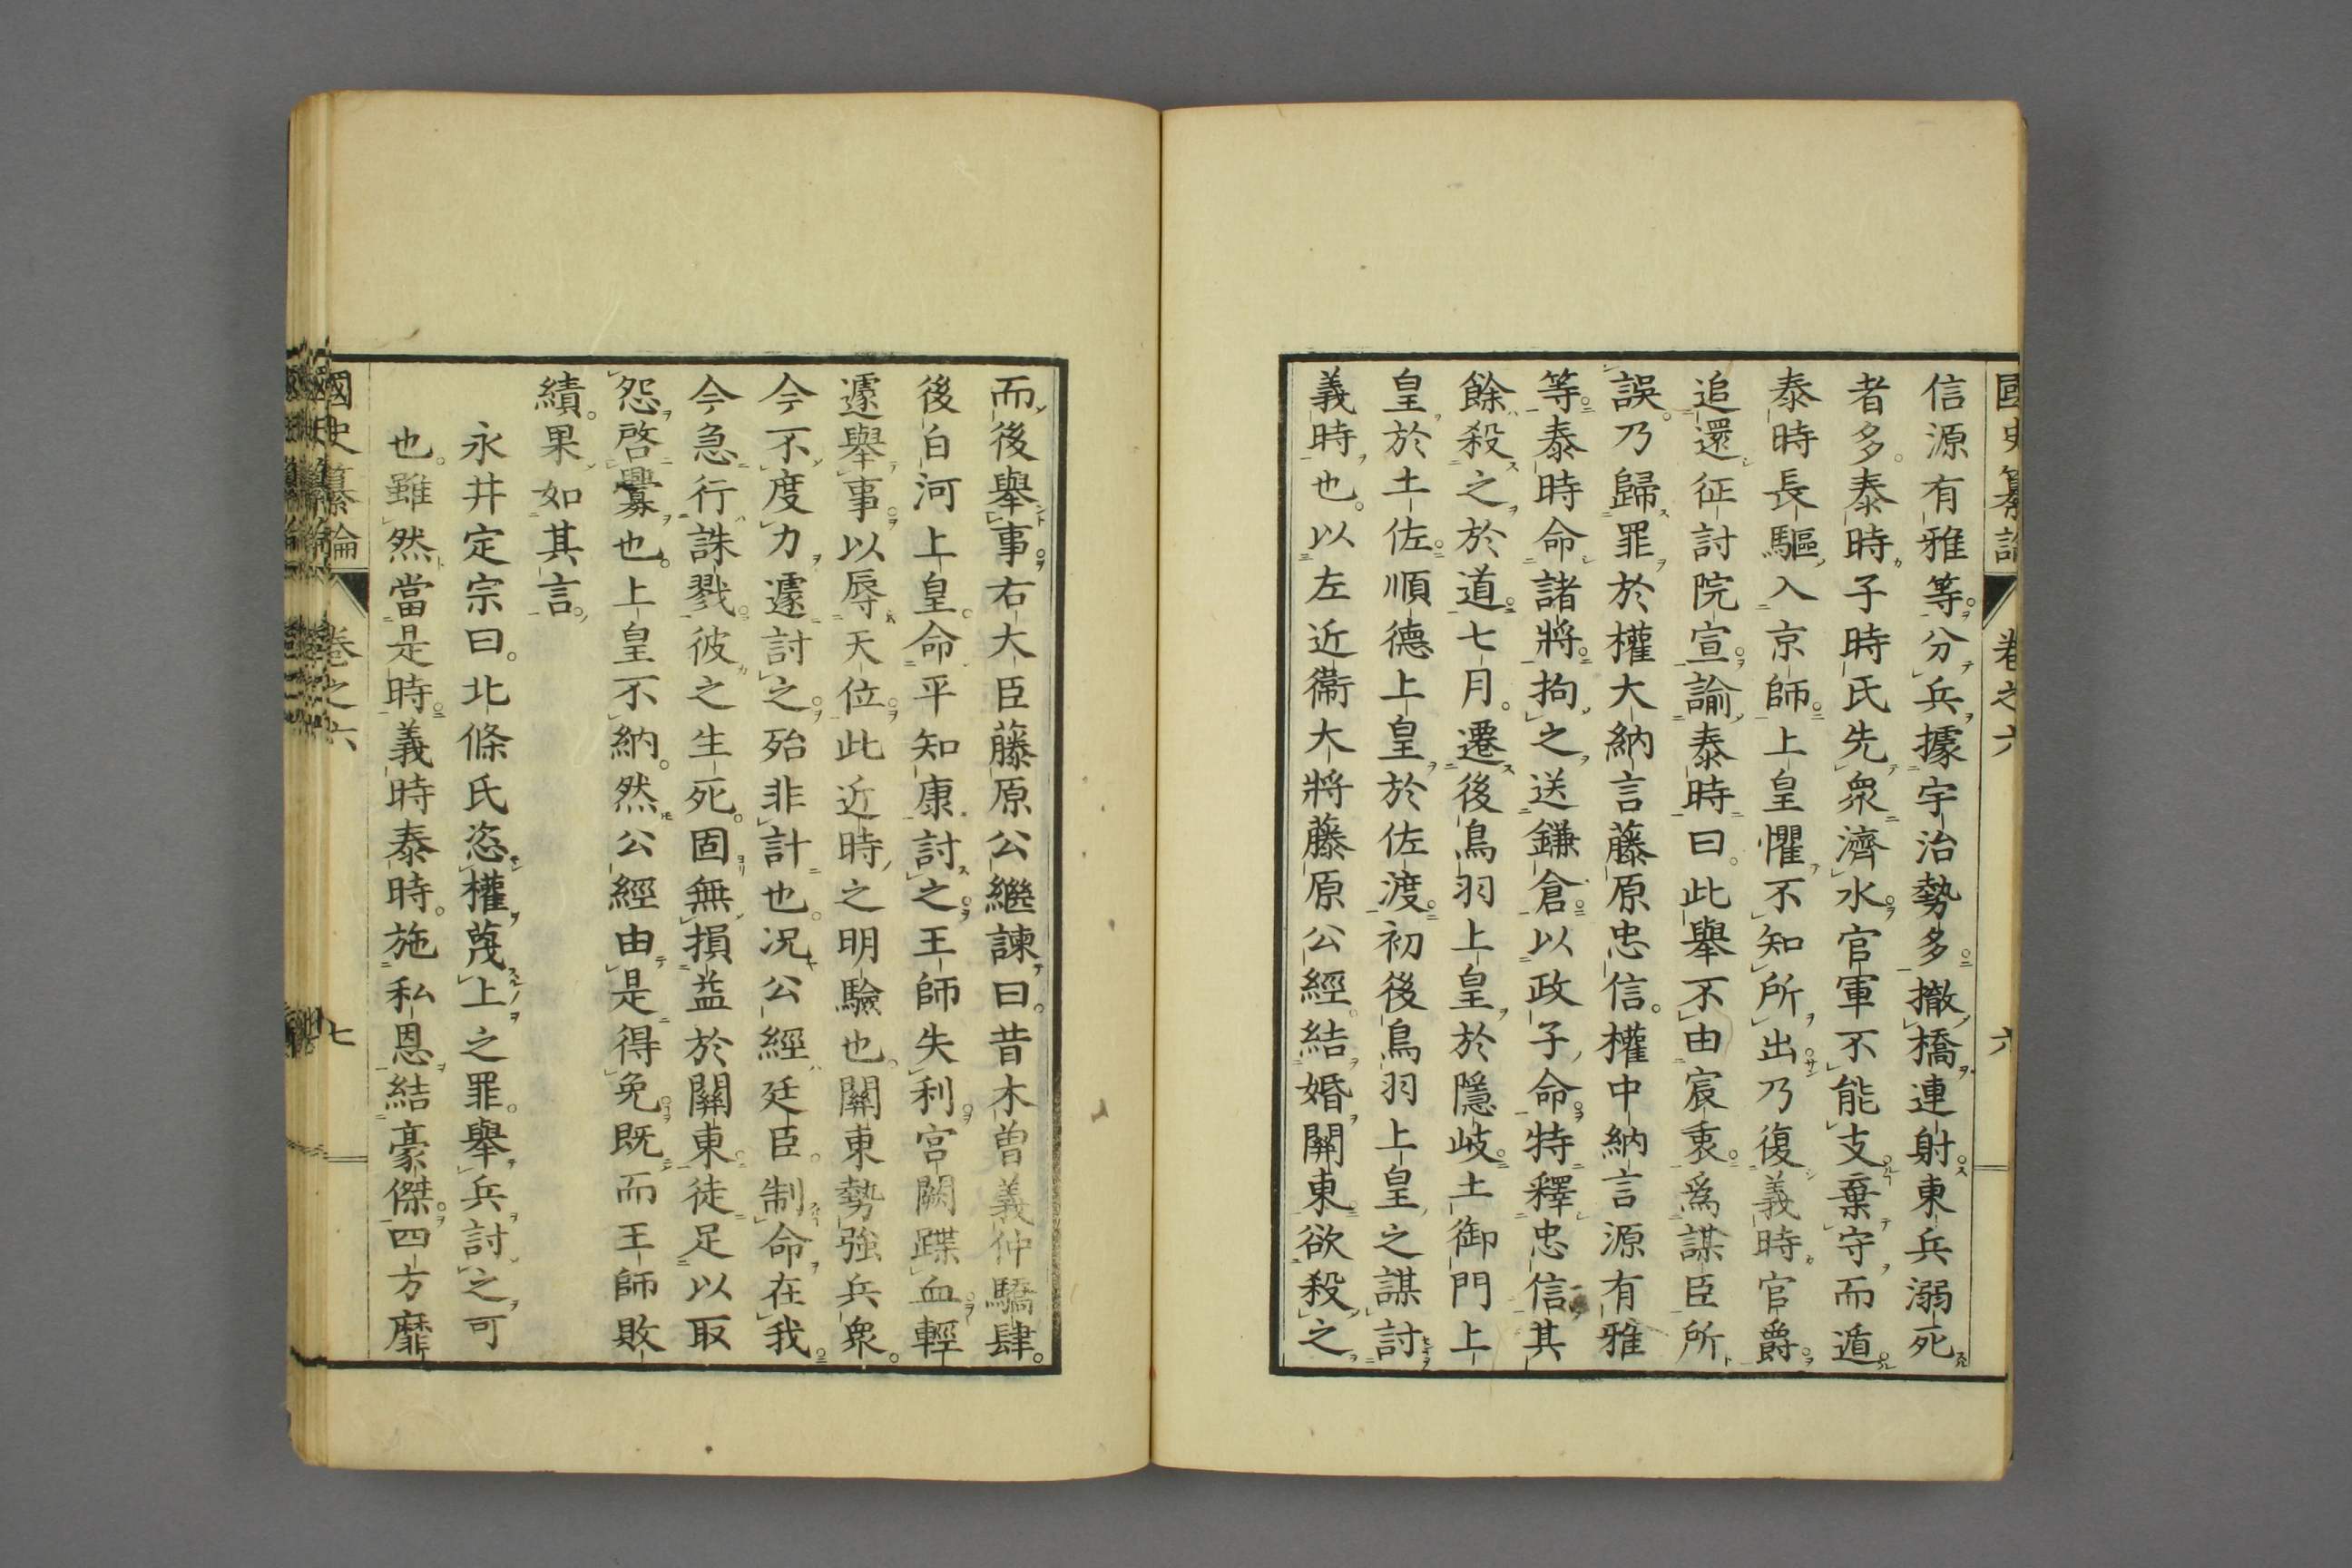 國史纂論 卷之六 六
信源有雅等。分兵據宇治勢多。撤橋連射。東兵溺死
者多。泰時子時氏先衆濟水。官軍不能支。棄守而遁。
泰時長驅入京師。上皇懼不知所出。乃復義時官爵。
追還征討院宣。諭泰時曰。此舉不由宸衷。爲謀臣所
誤。乃歸罪於權大納言藤原忠信。權中納言源有雅
等。泰時命諸將拘之送鎌倉。以政子命。特釋忠信。其
餘殺之於道。七月。遷後鳥羽上皇於隱岐。土御門上
皇於土佐。順德上皇於佐渡。初後鳥羽上皇之謀討
義時也。以左近衞大將藤原公經。結婚關東。欲殺之
而後舉事。右大臣藤原公繼諫曰。昔木曾義仲驕肆。
後白河上皇。命平知康討之。王師失利。宮闕蹀血。輕
遽舉事。以辱天位。此近時之明驗也。關東勢強兵衆。
今不度力。遽討之。殆非計也。况公經廷臣。制命在我。
今急行誅戮。彼之生死。固無損益於關東。徒足以取
怨啓釁也。上皇不納。然公經由是得免。既而王師敗
績。果如其言。
永井定宗曰。北條氏恣權蔑上之罪。舉兵討之可
也。雖然當是時。義時泰時。施私恩結豪傑。四方靡
國史纂論 卷之六 七